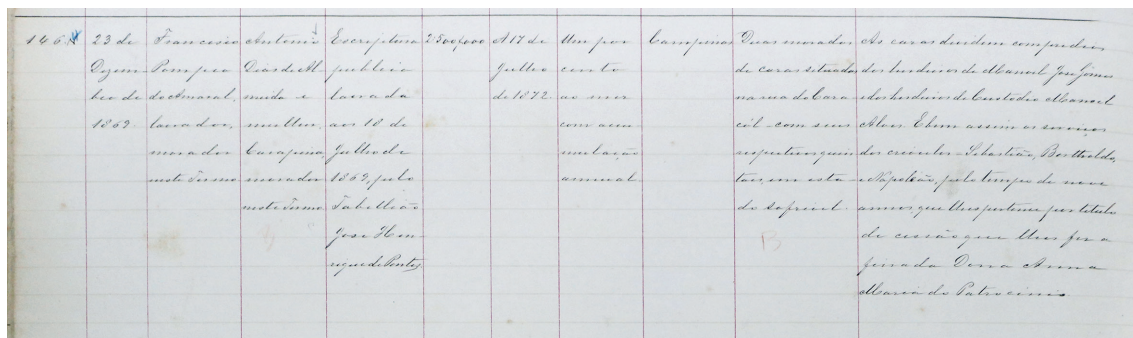 146
23 de
Dezem
bro de
1869
Francisco
Pompeo
do Amaral,
lavrador,
morador
neste Termo
Antonio
Dias de Al
meida e
mulher,
Campinas
morador
neste Termo
Escriptura
publica
lavrada
aos 18 de
Julho de
1869, pelo
Tabellião
José Hen
rique de Pontes
2:500$000
A 17 de
Julho
de 1872
Um por
cento
ao mez
com accu
mulação
annual
Campinas
Duas morados
de casas situadas
na rua do Cara
cól com seus
respectivos quin
taes, em esta
do sofrivel.
As casas dividem com predios
dos herdeiros de Manoel José Gomes
e dos herdeiros de Custodio Manoel
Alves. E bem assim os serviços
dos crioulos Sebastião, Bertholdo,
e Napoleão, pelo tempo de nove
annos que lhes pertence por titulo
de cessão que lhes fez a
finada Dona Anna
Maria do Patrocinio.
B